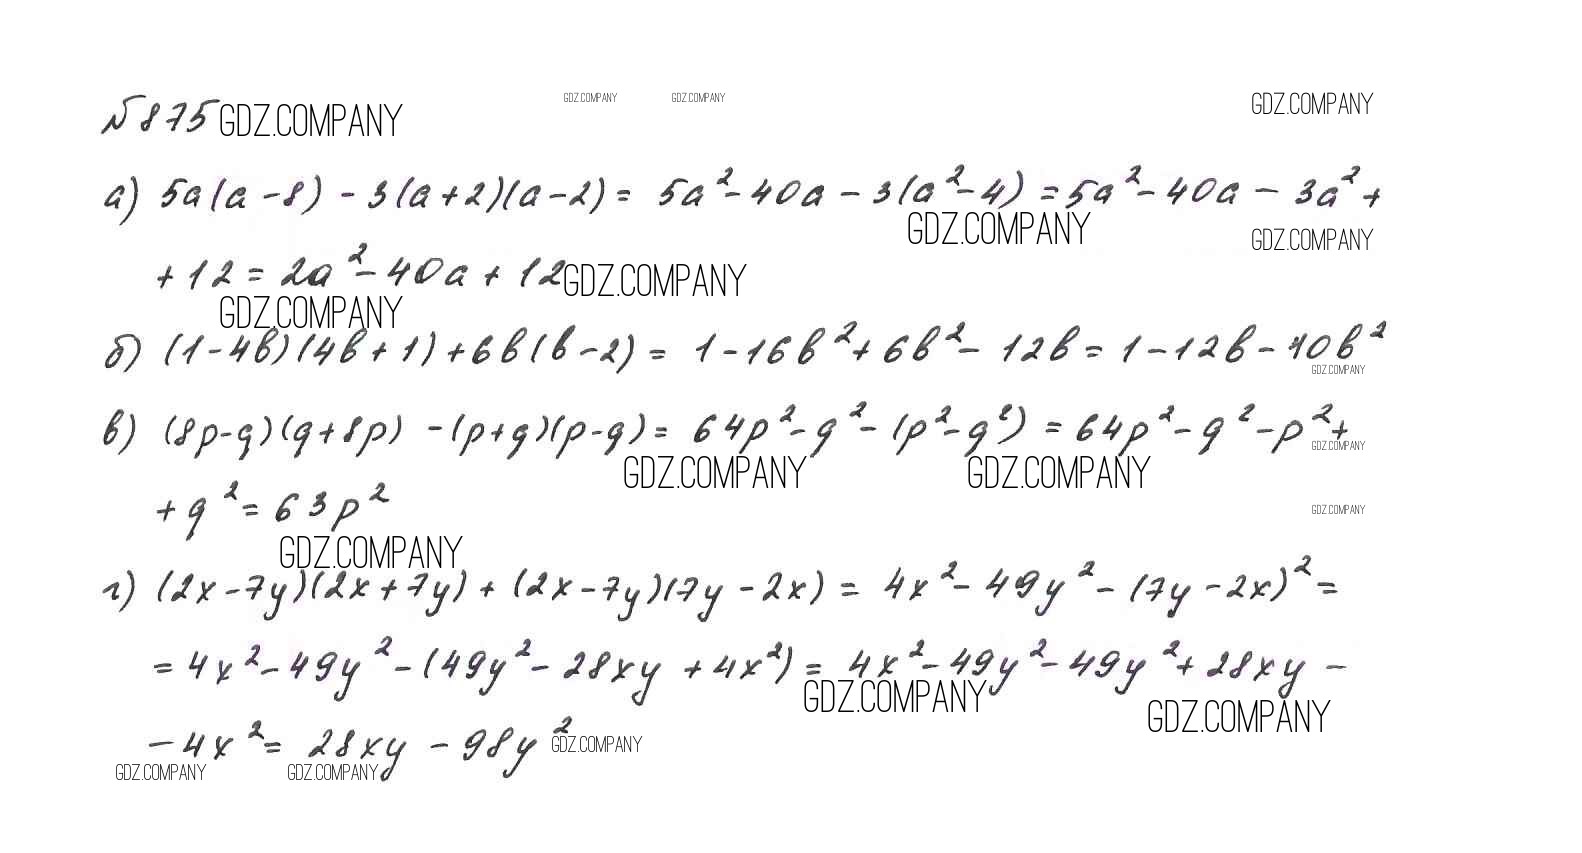 №875 GDZ.COMPANY GDZ.COMPANY GDZ.COMPANY GDZ.COMPANY
а) 5a(a-8) - 3(a+2)(a-2) = 5a²-40a - 3(a²-4) = 5a²-40a - 3a² +
GDZ.COMPANY GDZ.COMPANY
+12 = 2a²-40a+12 GDZ.COMPANY
GDZ.COMPANY
б) (1-4b)(4b+1)+6b(b-2) = 1-16b²+6b²-12b = 1-12b-10b²
GDZ.COMPANY
в) (8p-q)(q+8p) -(p+q)(p-q) = 64p²-q²-(p²-q²) = 64p²-q²-p²+
GDZ.COMPANY
GDZ.COMPANY GDZ.COMPANY
+q² = 63p²
GDZ.COMPANY
GDZ.COMPANY
г) (2x-7y)(2x+7y) + (2x-7y)(7y-2x) = 4x²-49y²-(7y-2x)² =
= 4x²-49y²-(49y²-28xy+4x²) = 4x²-49y²-49y²+28xy -
GDZ.COMPANY GDZ.COMPANY
-4x² = 28xy - 98y² GDZ.COMPANY
GDZ.COMPANY GDZ.COMPANY